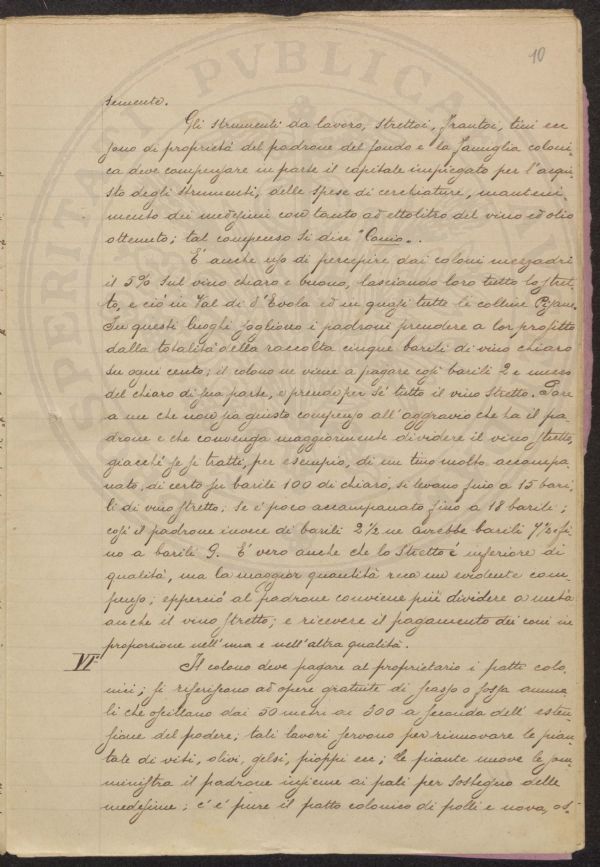 10
semente.
Gli strumenti da lavoro, strettoi, frantoi, tini ecc
sono di proprietà del padrone del fondo e la famiglia coloni-
ca deve compensare in parte il capitale impiegato per l'acqui-
sto degli strumenti, delle spese di cerchiature, manteni-
mento dei medesimi con tanto ad ettolitro del vino ed olio
ottenuto; tal compenso si dice "Conio".
E' anche uso di percepire dai coloni mezzadri
il 5% sul vino chiaro e buono, lasciando loro tutto lo stret-
to, e ciò in Val di d'Evola ed in quasi tutte le colline Pisane.
In questi luoghi sogliono i padroni prendere a lor profitto
dalla totalità della raccolta cinque barili di vino chiaro
su ogni cento; il colono ne viene a pagare così barili 2 e mezzo
del chiaro di sua parte, e prende per sé tutto il vino stretto. Pare
a me che non sia giusto compenso all'aggravio che ha il pa-
drone e che convenga maggiormente dividere il vino stretto,
giacché se si tratti, per esempio, di un tino molto accampa-
nato, di certo su barili 100 di chiaro, si levano fino a 15 bari-
li di vino stretto; se è poco accampanato fino a 18 barili;
così il padrone invece di barili 2 1/2 ne avrebbe barili 7 1/2 e fi-
no a barili 9. E' vero anche che lo stretto è inferiore di
qualità, ma la maggior quantità reca un evidente com-
penso; epperciò al padrone conviene più dividere a metà
anche il vino stretto; e ricevere il pagamento dei coni in
proporzione nell'una e nell'altra qualità.
VI° Il colono deve pagare al proprietario i patti colo-
nici; si riferiscono ad opere gratuite di scasso o fossa annua-
li che oscillano dai 50 metri ai 300 a seconda dell'esten-
sione del podere; tali lavori servono per rinnovare le pian-
tate di viti, olivi, gelsi, pioppi ecc; le piante nuove le som-
ministra il padrone insieme ai pali per sostegno delle
medesime; c'è pure il patto colonico di polli e uova, os-